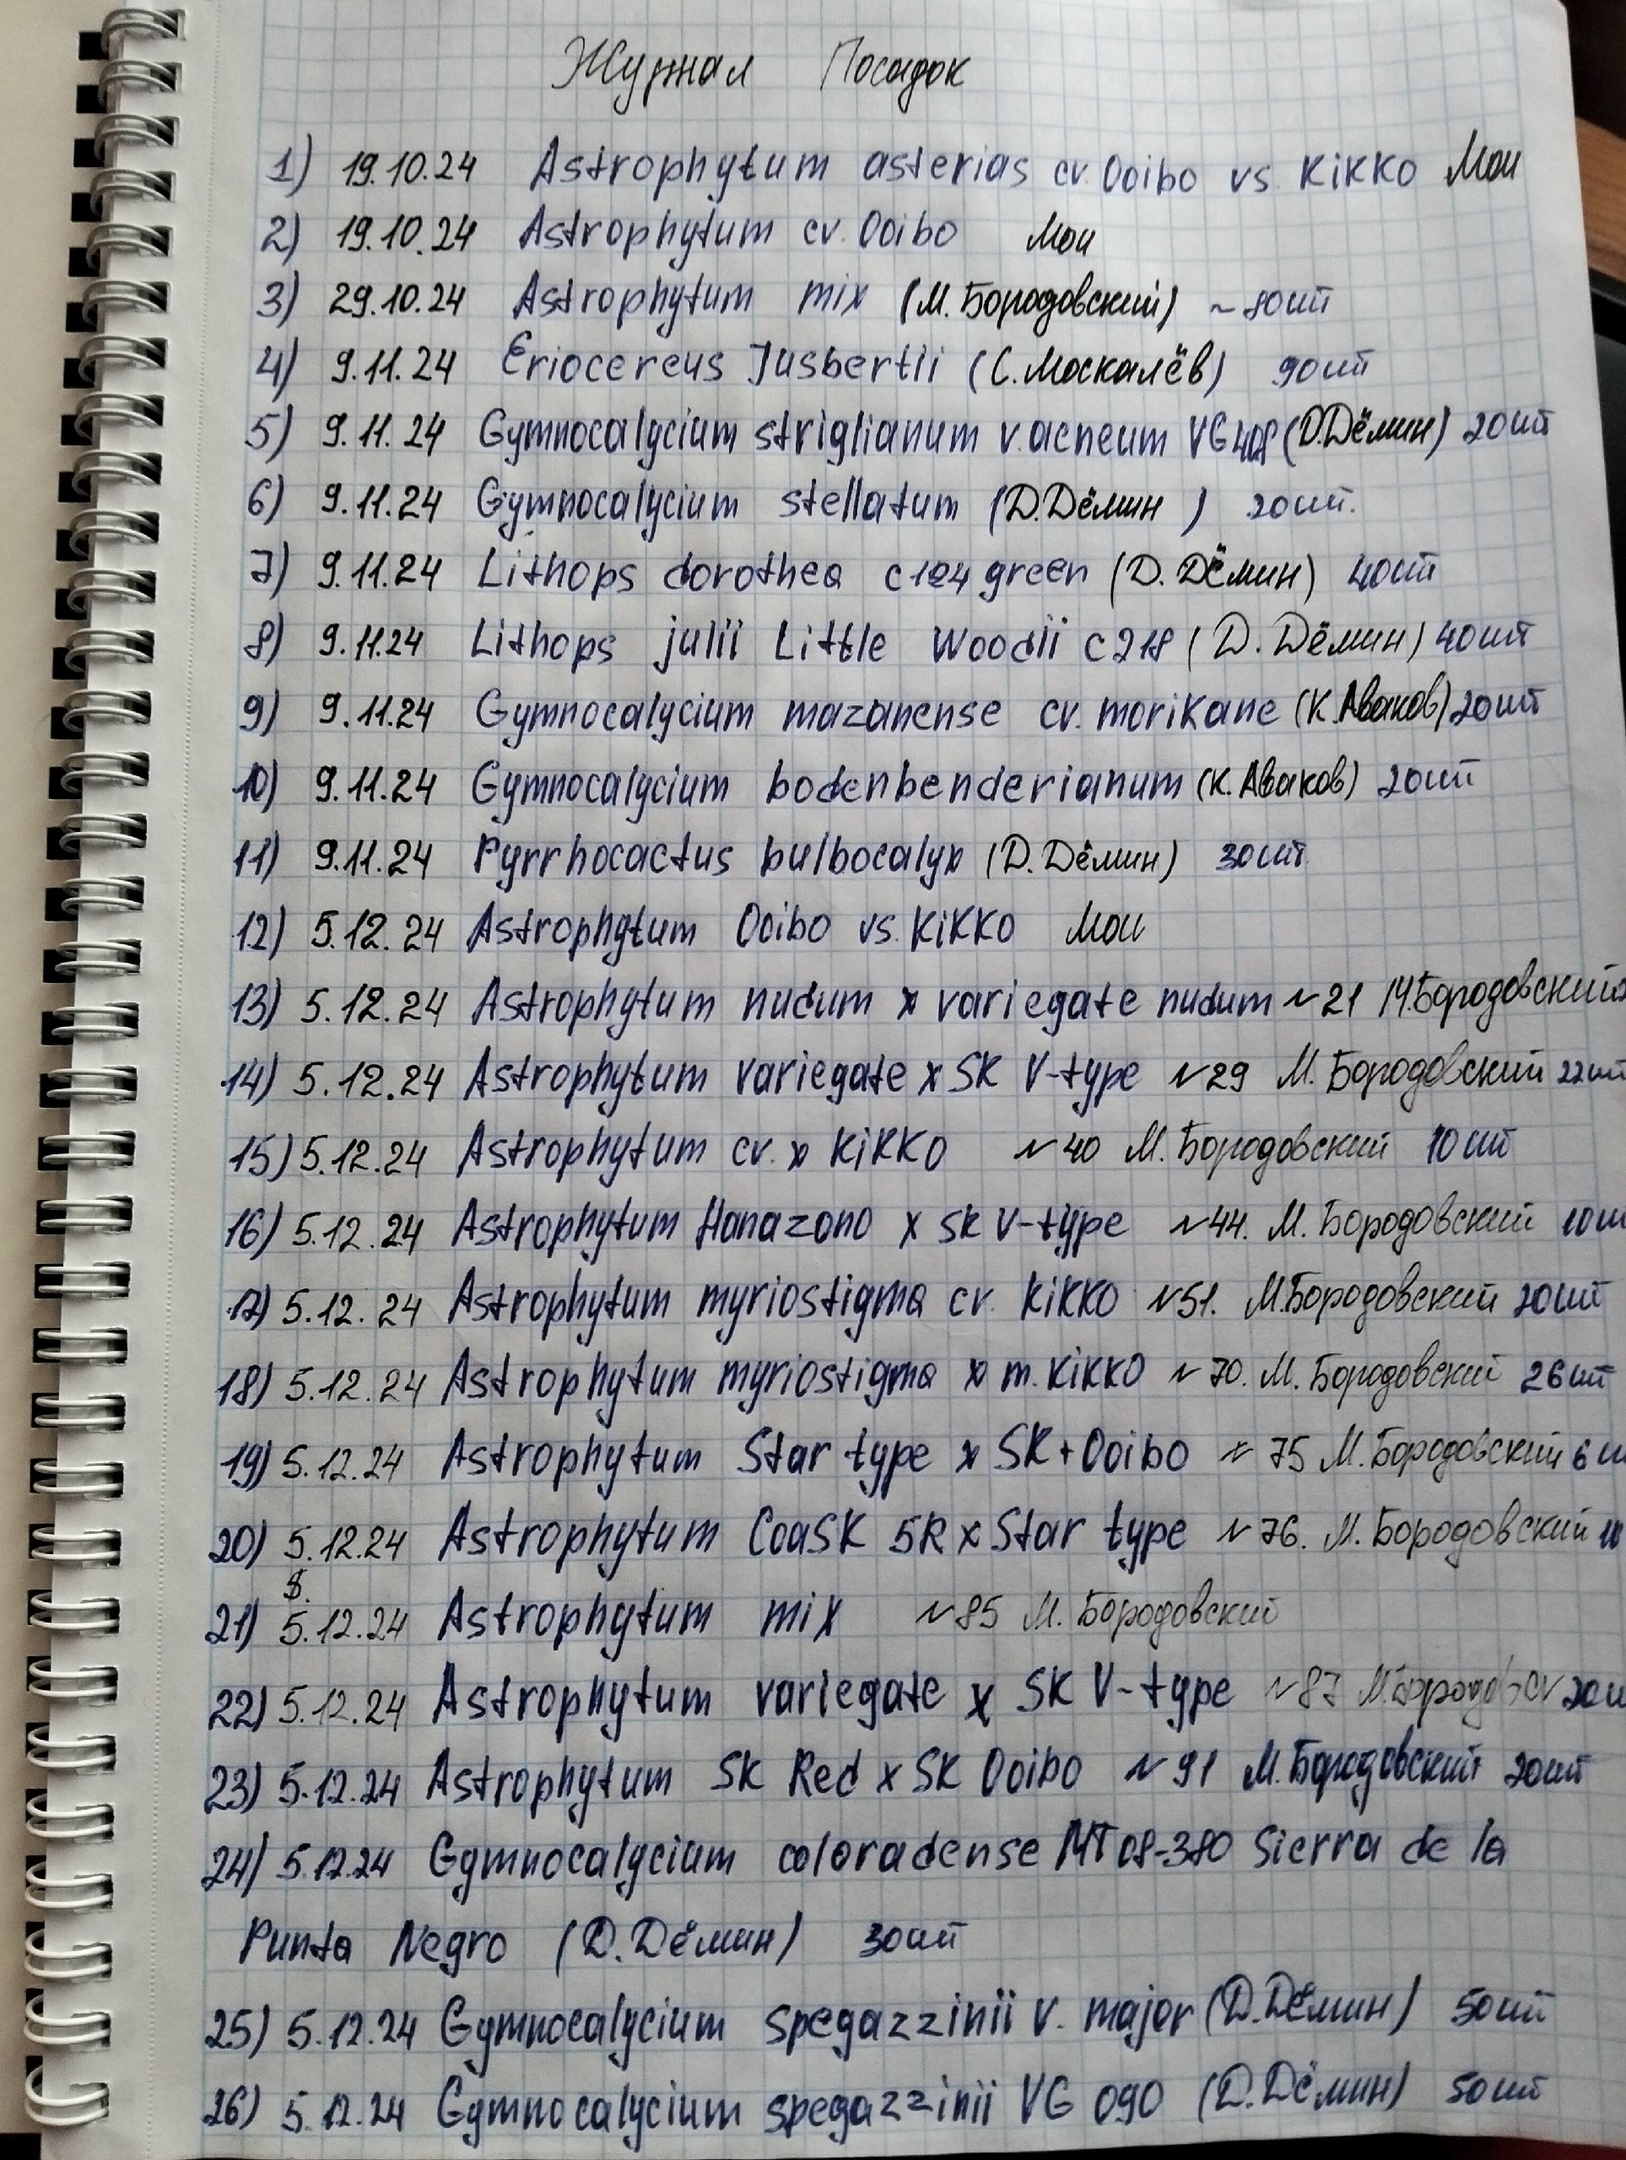 Журнал Посадок
1) 19.10.24 Astrophytum asterias cv. Ooibo vs. Kikko Мои
2) 19.10.24 Astrophytum cv. Ooibo Мои
3) 29.10.24 Astrophytum mix (М. Бородовский) ~80шт
4) 9.11.24 Eriocereus Jusbertii (С. Москалёв) 90шт
5) 9.11.24 Gymnocalycium striglianum v. aeneum VG408 (Д.Дёмин) 20шт
6) 9.11.24 Gymnocalycium stellatum (Д.Дёмин) 20шт.
7) 9.11.24 Lithops dorothea c124 green (Д. Дёмин) 40шт
8) 9.11.24 Lithops julii Little Woodii c218 (Д. Дёмин) 40шт
9) 9.11.24 Gymnocalycium mazanense cv. morikane (К.Аваков) 20шт
10) 9.11.24 Gymnocalycium bodenbenderianum (К. Аваков) 20шт
11) 9.11.24 Pyrrhocactus bulbocalyx (Д. Дёмин) 30шт
12) 5.12.24 Astrophytum Ooibo vs. Kikko Мои
13) 5.12.24 Astrophytum nudum x variegate nudum N21 М.Бородовский
14) 5.12.24 Astrophytum variegate x SK V-type N29 М. Бородовский 22шт
15) 5.12.24 Astrophytum cv. x Kikko N40 М. Бородовский 10шт
16) 5.12.24 Astrophytum Hanazono x SK V-type N44. М. Бородовский 10ш
17) 5.12.24 Astrophytum myriostigma cv. Kikko N51. М.Бородовский 20шт
18) 5.12.24 Astrophytum myriostigma x m. Kikko N70. М. Бородовский 26шт
19) 5.12.24 Astrophytum Star type x SK+Ooibo N75 М. Бородовский 6ш
20) 5.12.24 Astrophytum CoaSK 5R x Star type N76. М. Бородовский
21) 5.12.24 Astrophytum mix N85 М. Бородовский
22) 5.12.24 Astrophytum variegate x SK V-type N87 20ш
23) 5.12.24 Astrophytum SK Red x SK Ooibo N91 М.Бородовский 20шт
24) 5.12.24 Gymnocalycium coloradense MT08-380 Sierra de la
Punta Negro (Д.Дёмин) 30шт
25) 5.12.24 Gymnocalycium spegazzinii v. major (Д.Дёмин) 50шт
26) 5.12.24 Gymnocalycium spegazzinii VG 090 (Д.Дёмин) 50шт